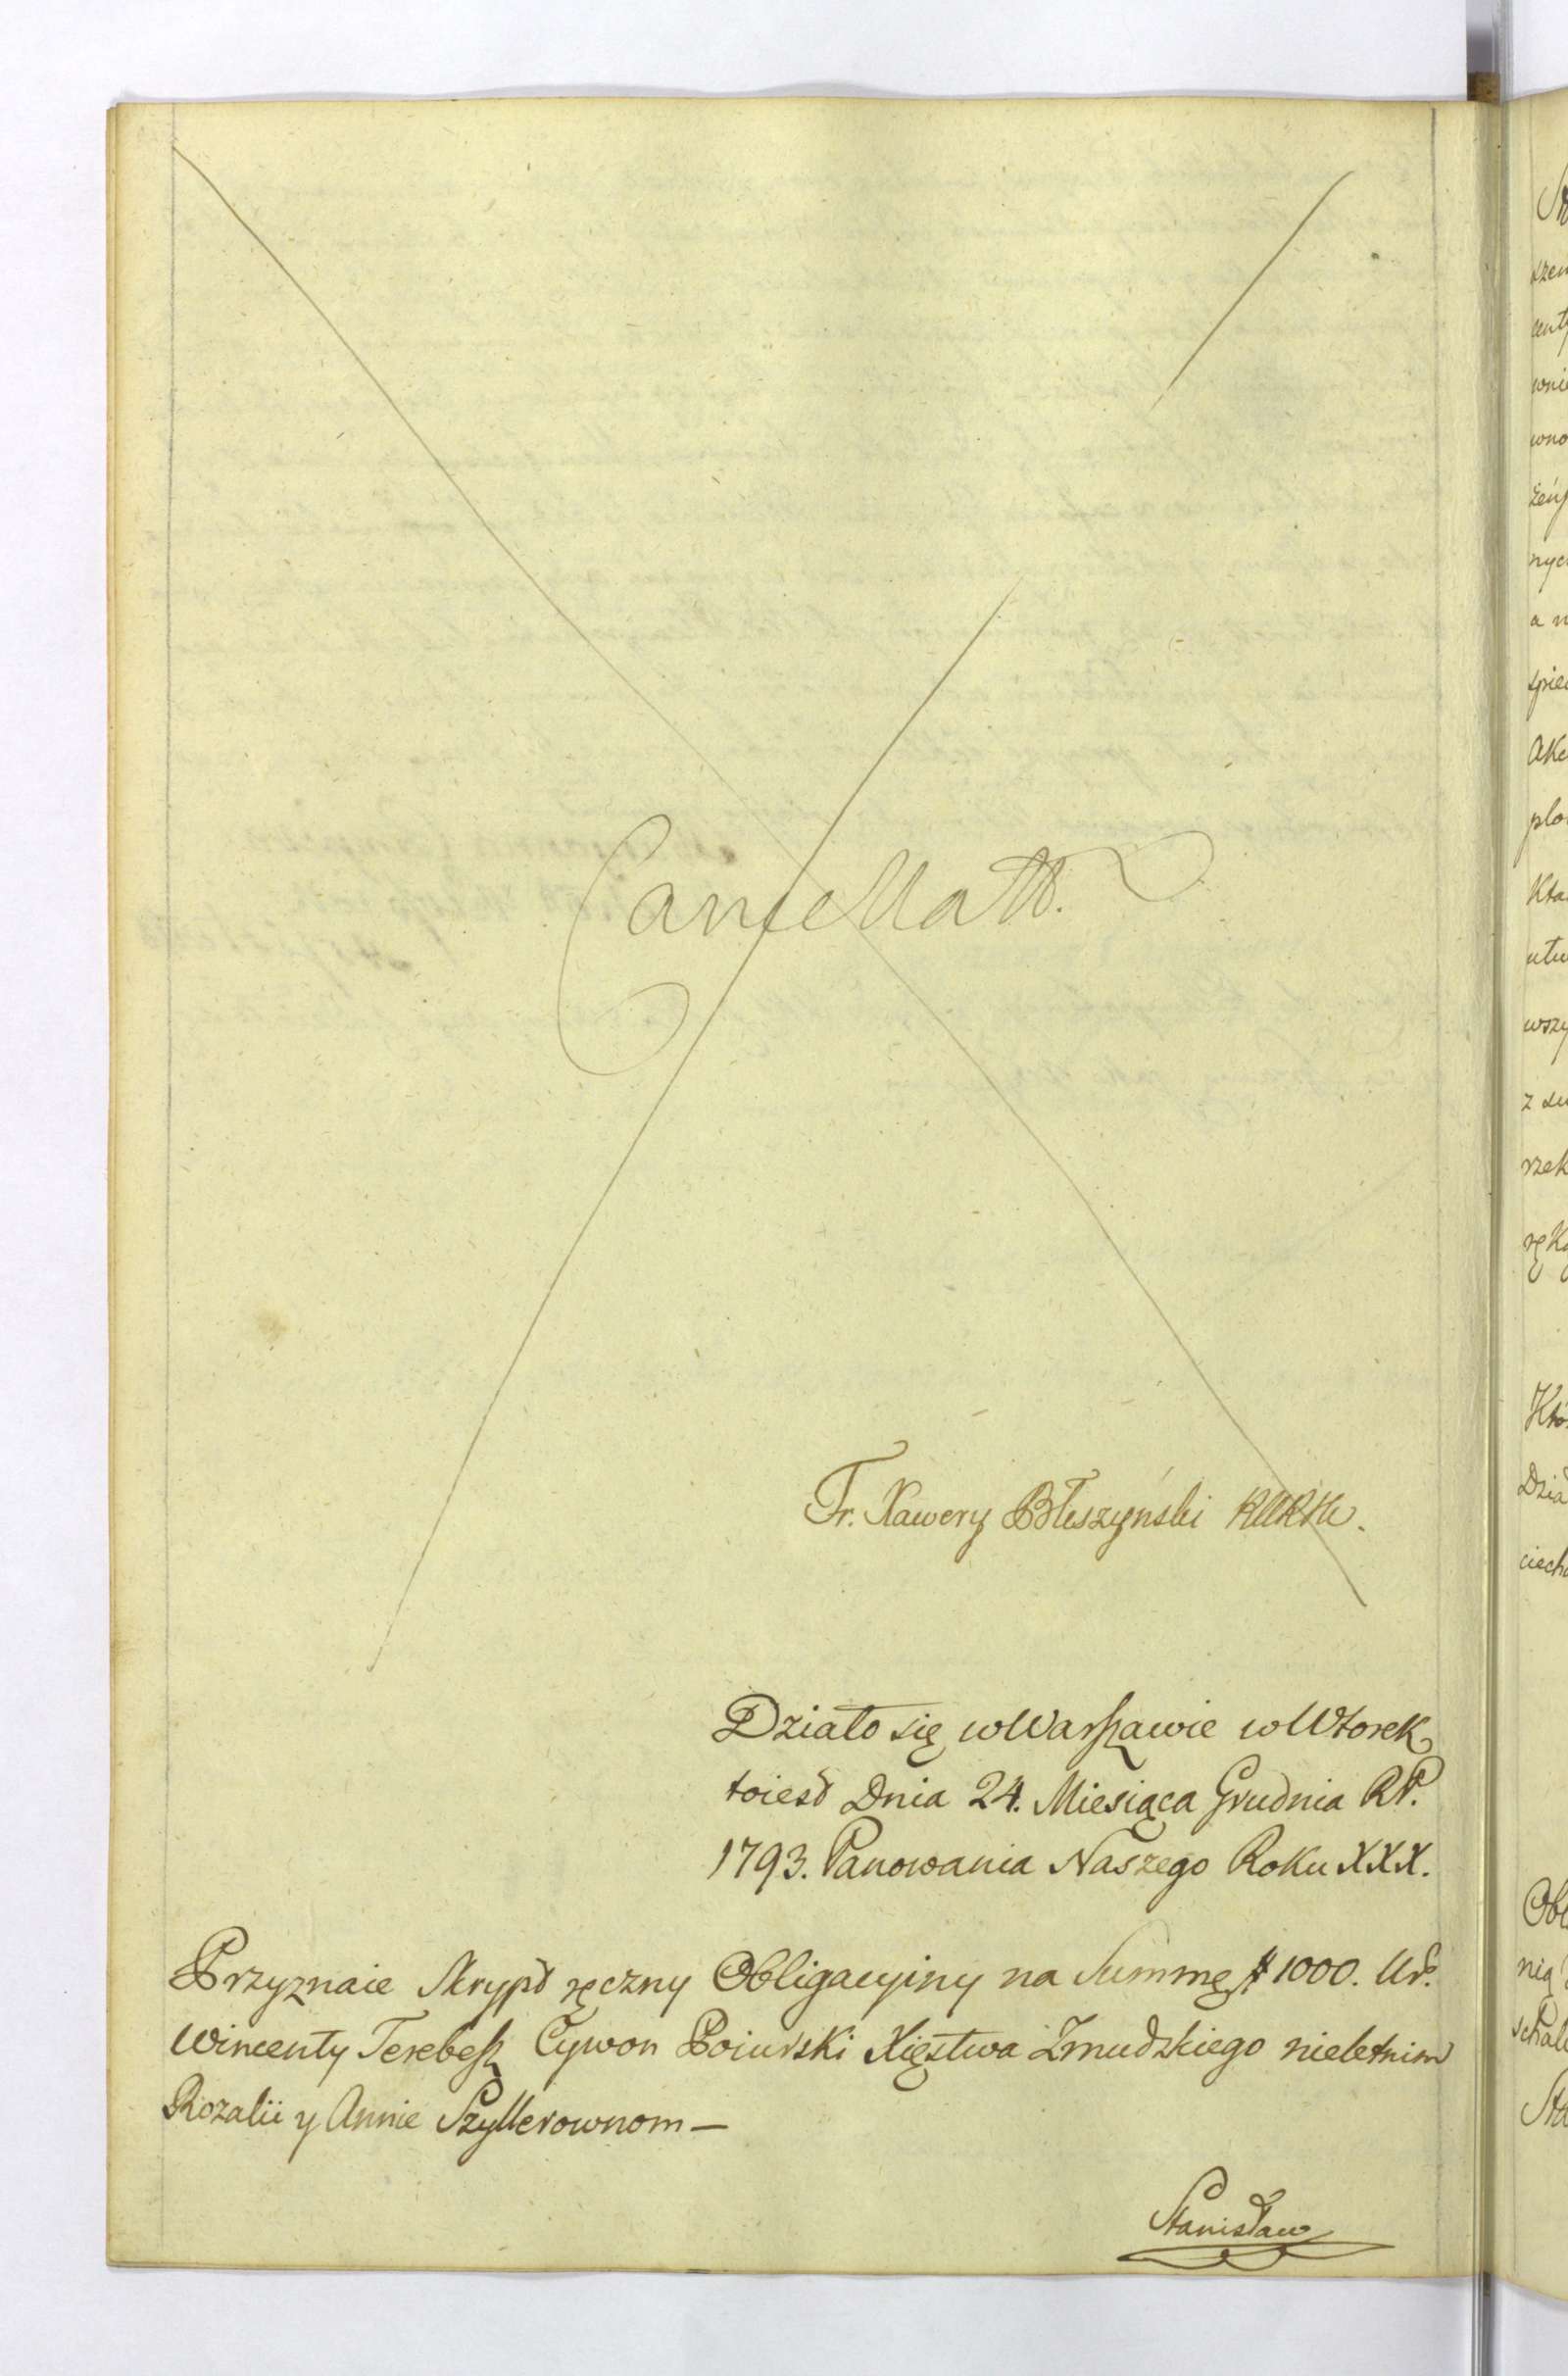 Cancellatt.
Fr. Xawery Błeszyński
Działo się w Warszawie w Wtorek
toiest Dnia 24. Miesiąca Grudnia RP.
1793. Panowania Naszego Roku XXX.
Przyznaie Skrypt ręczny Obligacyiny na Summę # 1000. Ur.
Wincenty Terebesz Cywon Poiurski Xięstwa Zmudzkiego nieletnim
Rozalii y Annie Szyllerownom—
Stanisław